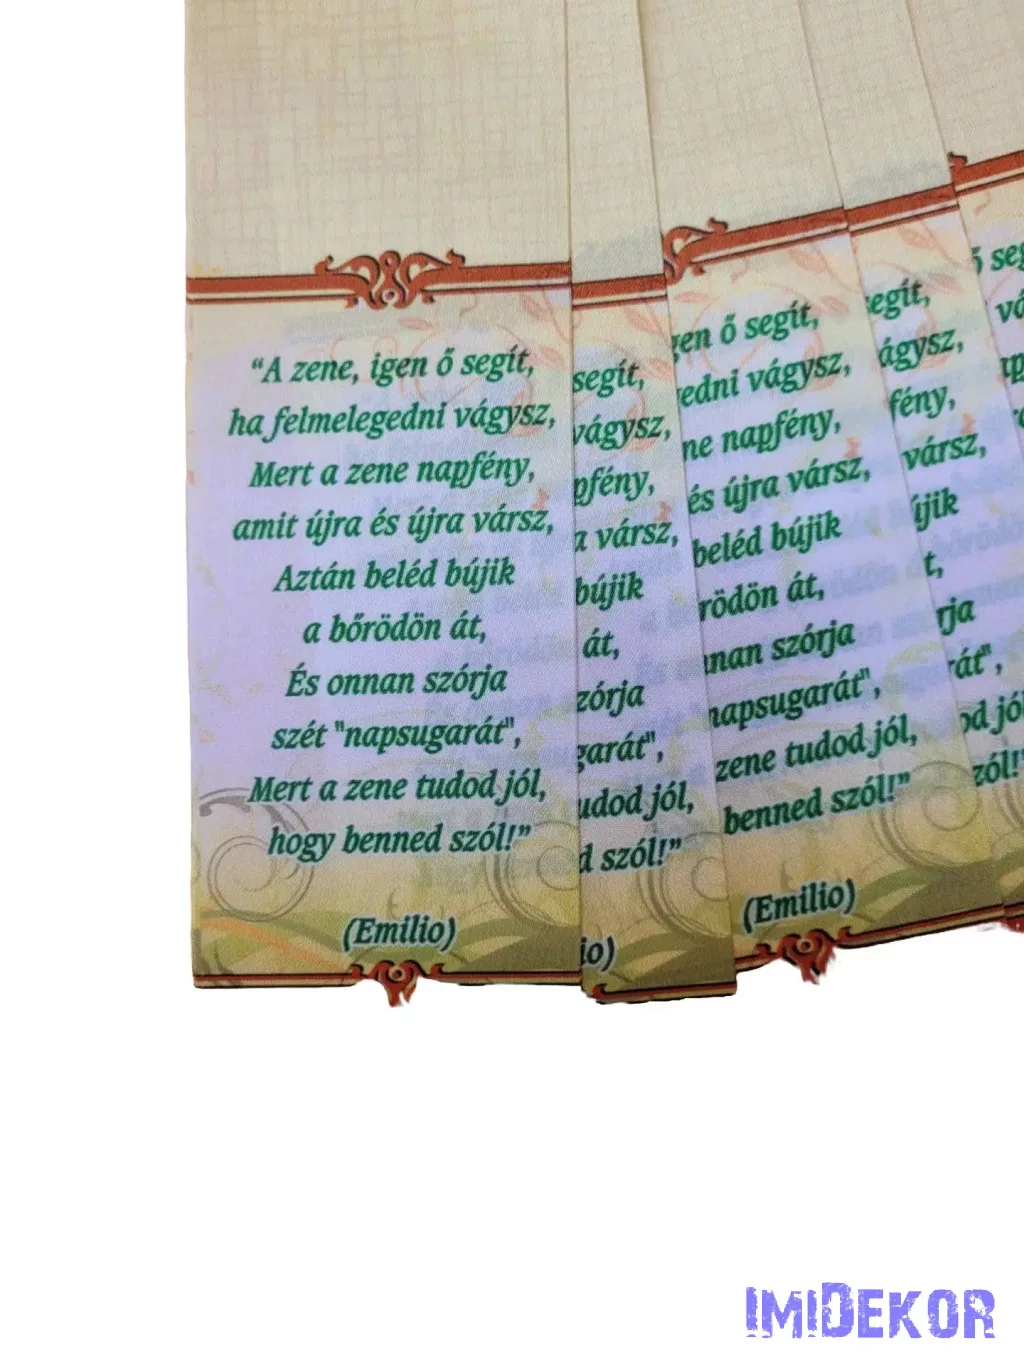 “A zene, igen ő segít,
ha felmelegedni vágysz,
Mert a zene napfény,
amit újra és újra vársz,
Aztán beléd bújik
a bőrödön át,
És onnan szórja
szét "napsugarát",
Mert a zene tudod jól,
hogy benned szól!”
(Emilio)
segít,
vágysz,
pfény,
a vársz,
bújik
át,
zórja
garát",
udod jól,
d szól!”
io)
gen ő segít,
edni vágysz,
ne napfény,
és újra vársz,
beléd bújik
rödön át,
nnan szórja
napsugarát",
zene tudod jól,
benned szól!”
(Emilio)
segít,
ágysz,
fény,
vársz,
újik
t,
rja
rát",
od jól
zól!”
ő seg
vá
IMIDEKOR